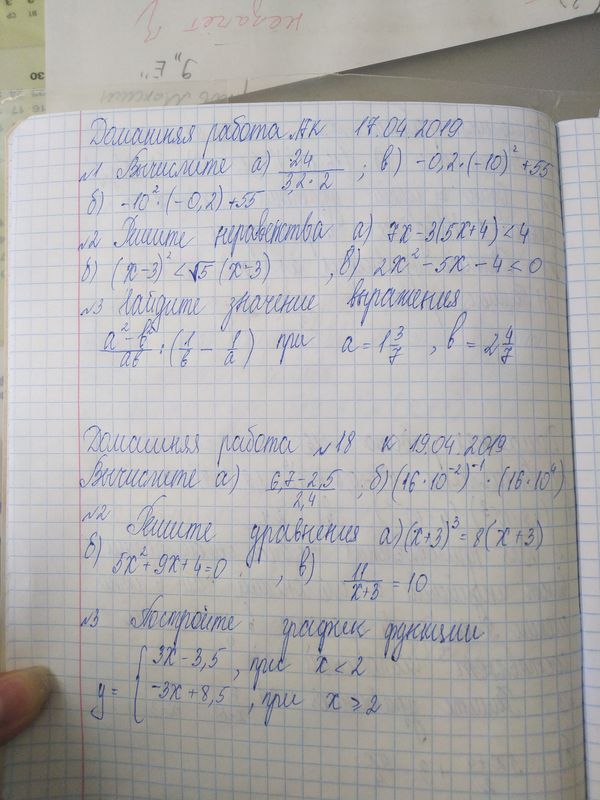 незачет
9 "Е"
30
16 17
Домашняя работа к 17.04.2019
№1 Вычислите а) 24/(3,2·2) ; в) -0,2·(-10)²+55
б) -10²·(-0,2)+55
№2 Решите неравенства а) 7x-3(5x+4)<4
б) (x-3)²<√5(x-3) , в) 2x²-5x-4≤0
№3 Найдите значение выражения
(a²-b²)/ab : (1/b - 1/a) при a=1 3/7 , b=2 4/7
Домашняя работа №18 к 19.04.2019
Вычислите а) (6,7-2,5)/2,4 ; б) (16·10⁻²)⁻¹·(16·10⁴)
№2 Решите уравнения а) (x+3)³=8(x+3)
б) 5x²+9x+4=0 , в) 11/(x+3) = 10
№3 Постройте график функции
y= { 3x-3,5 , при x<2
-3x+8,5 , при x≥2